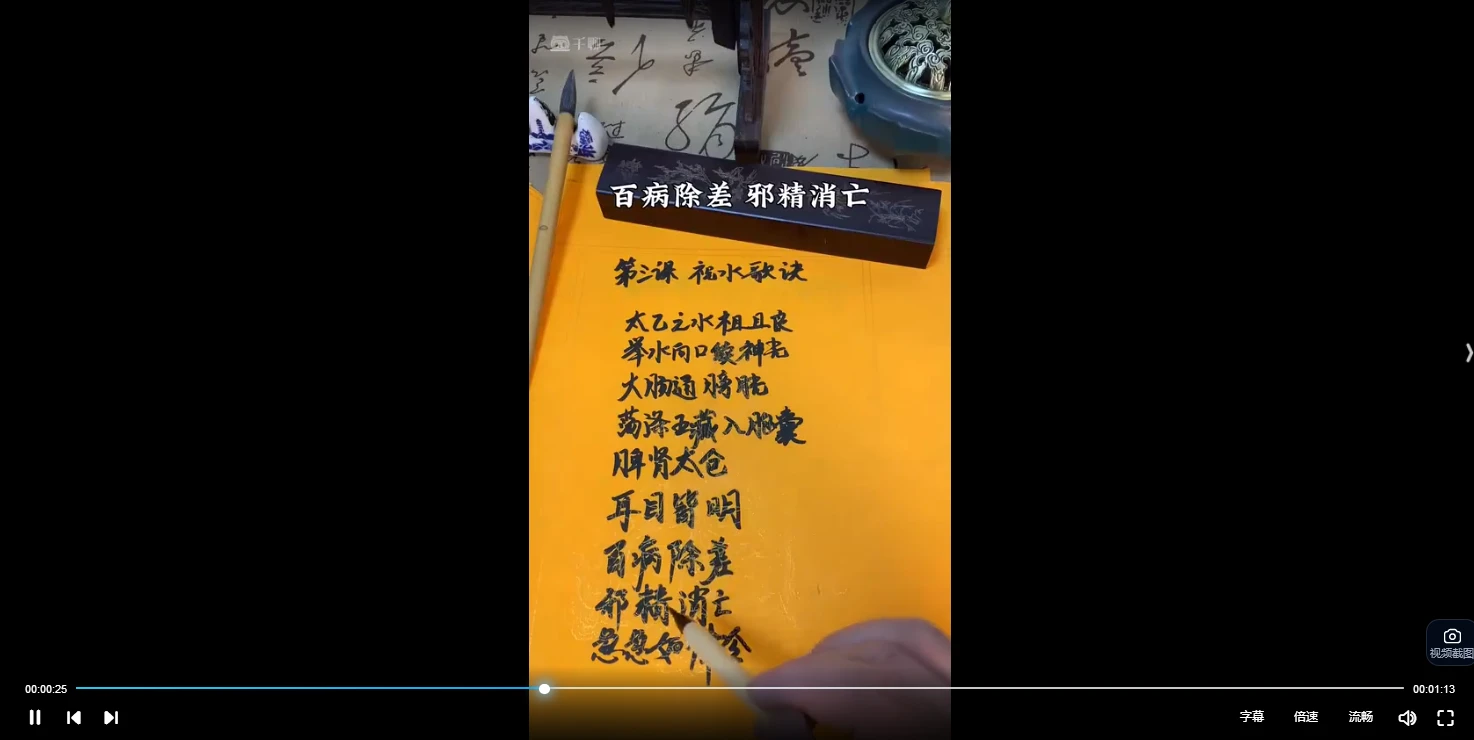 千聊
百病除差 邪精消亡
第三课 祝水歌诀
太乙之水祖且良
举水向口续神光
大肠通膀胱
荡涤五藏入胆囊
脾肾太仓
耳目皆明
百病除差
邪精消亡
急急如律令
视频截图
00:00:25
00:01:13
字幕
倍速
流畅